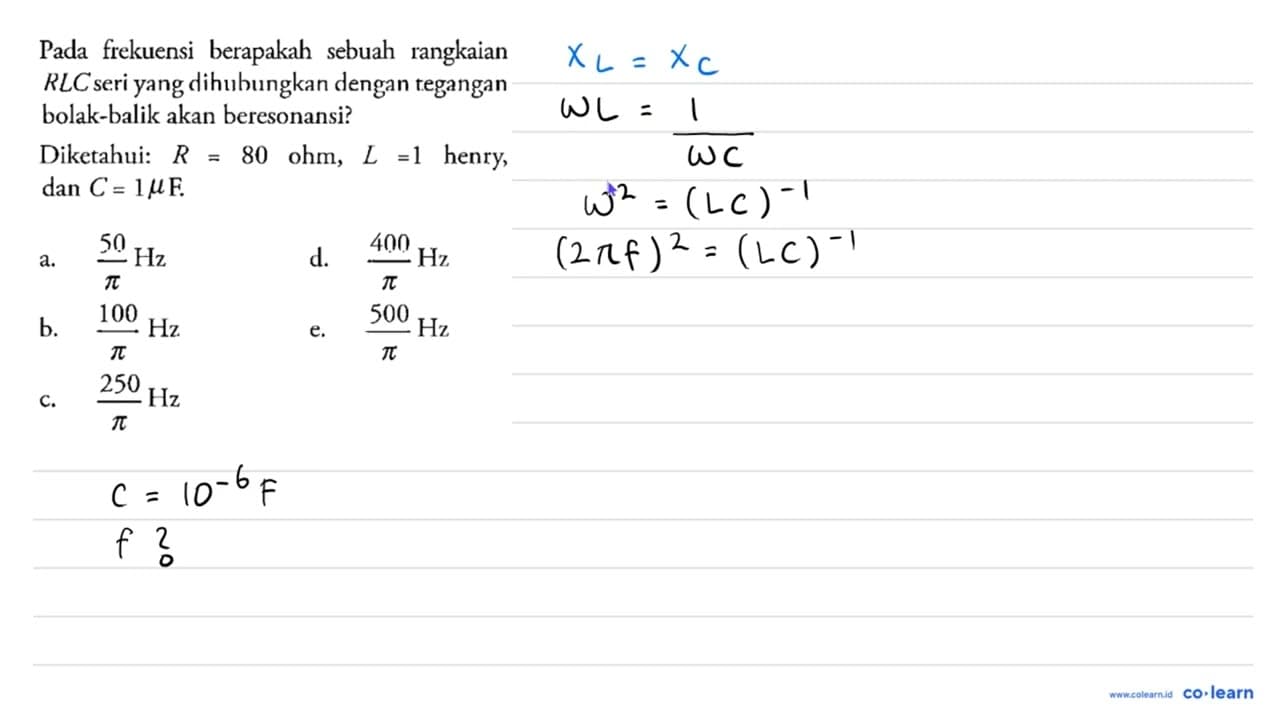 Pada frekuensi berapakah sebuah rangkaian
RLC seri yang dihubungkan dengan tegangan
bolak-balik akan beresonansi?
Diketahui: R = 80 ohm, L =1 henry,
dan C = 1 μF.
a. 50/π Hz
b. 100/π Hz
c. 250/π Hz
d. 400/π Hz
e. 500/π Hz
C = 10⁻⁶ F
f ?
X_L = X_C
ωL = 1/ωC
ω² = (LC)⁻¹
(2πf)² = (LC)⁻¹
www.colearn.id co·learn